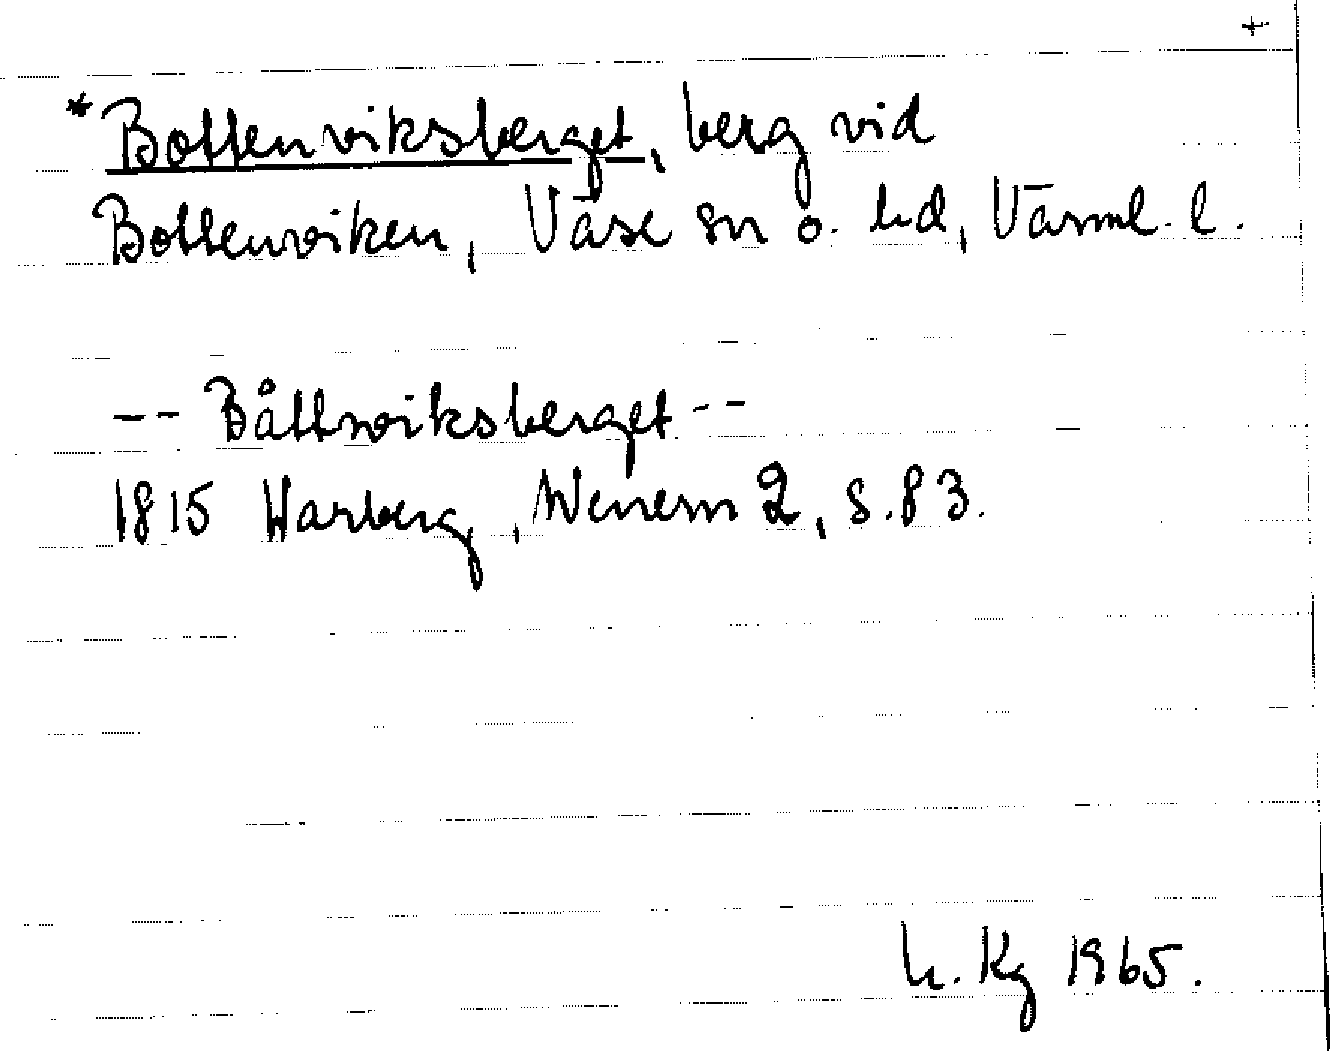 +
*Bottenviksberget, berg vid
Bottenviken, Väse sn o. hd, Värml. l.
-- Båttnviksberget --
1815 Warberg, Wenern 2, s. 83.
h. Kg 1965.